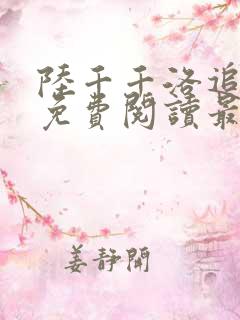 陸千千洛追
免費閱讀最
姜靜開